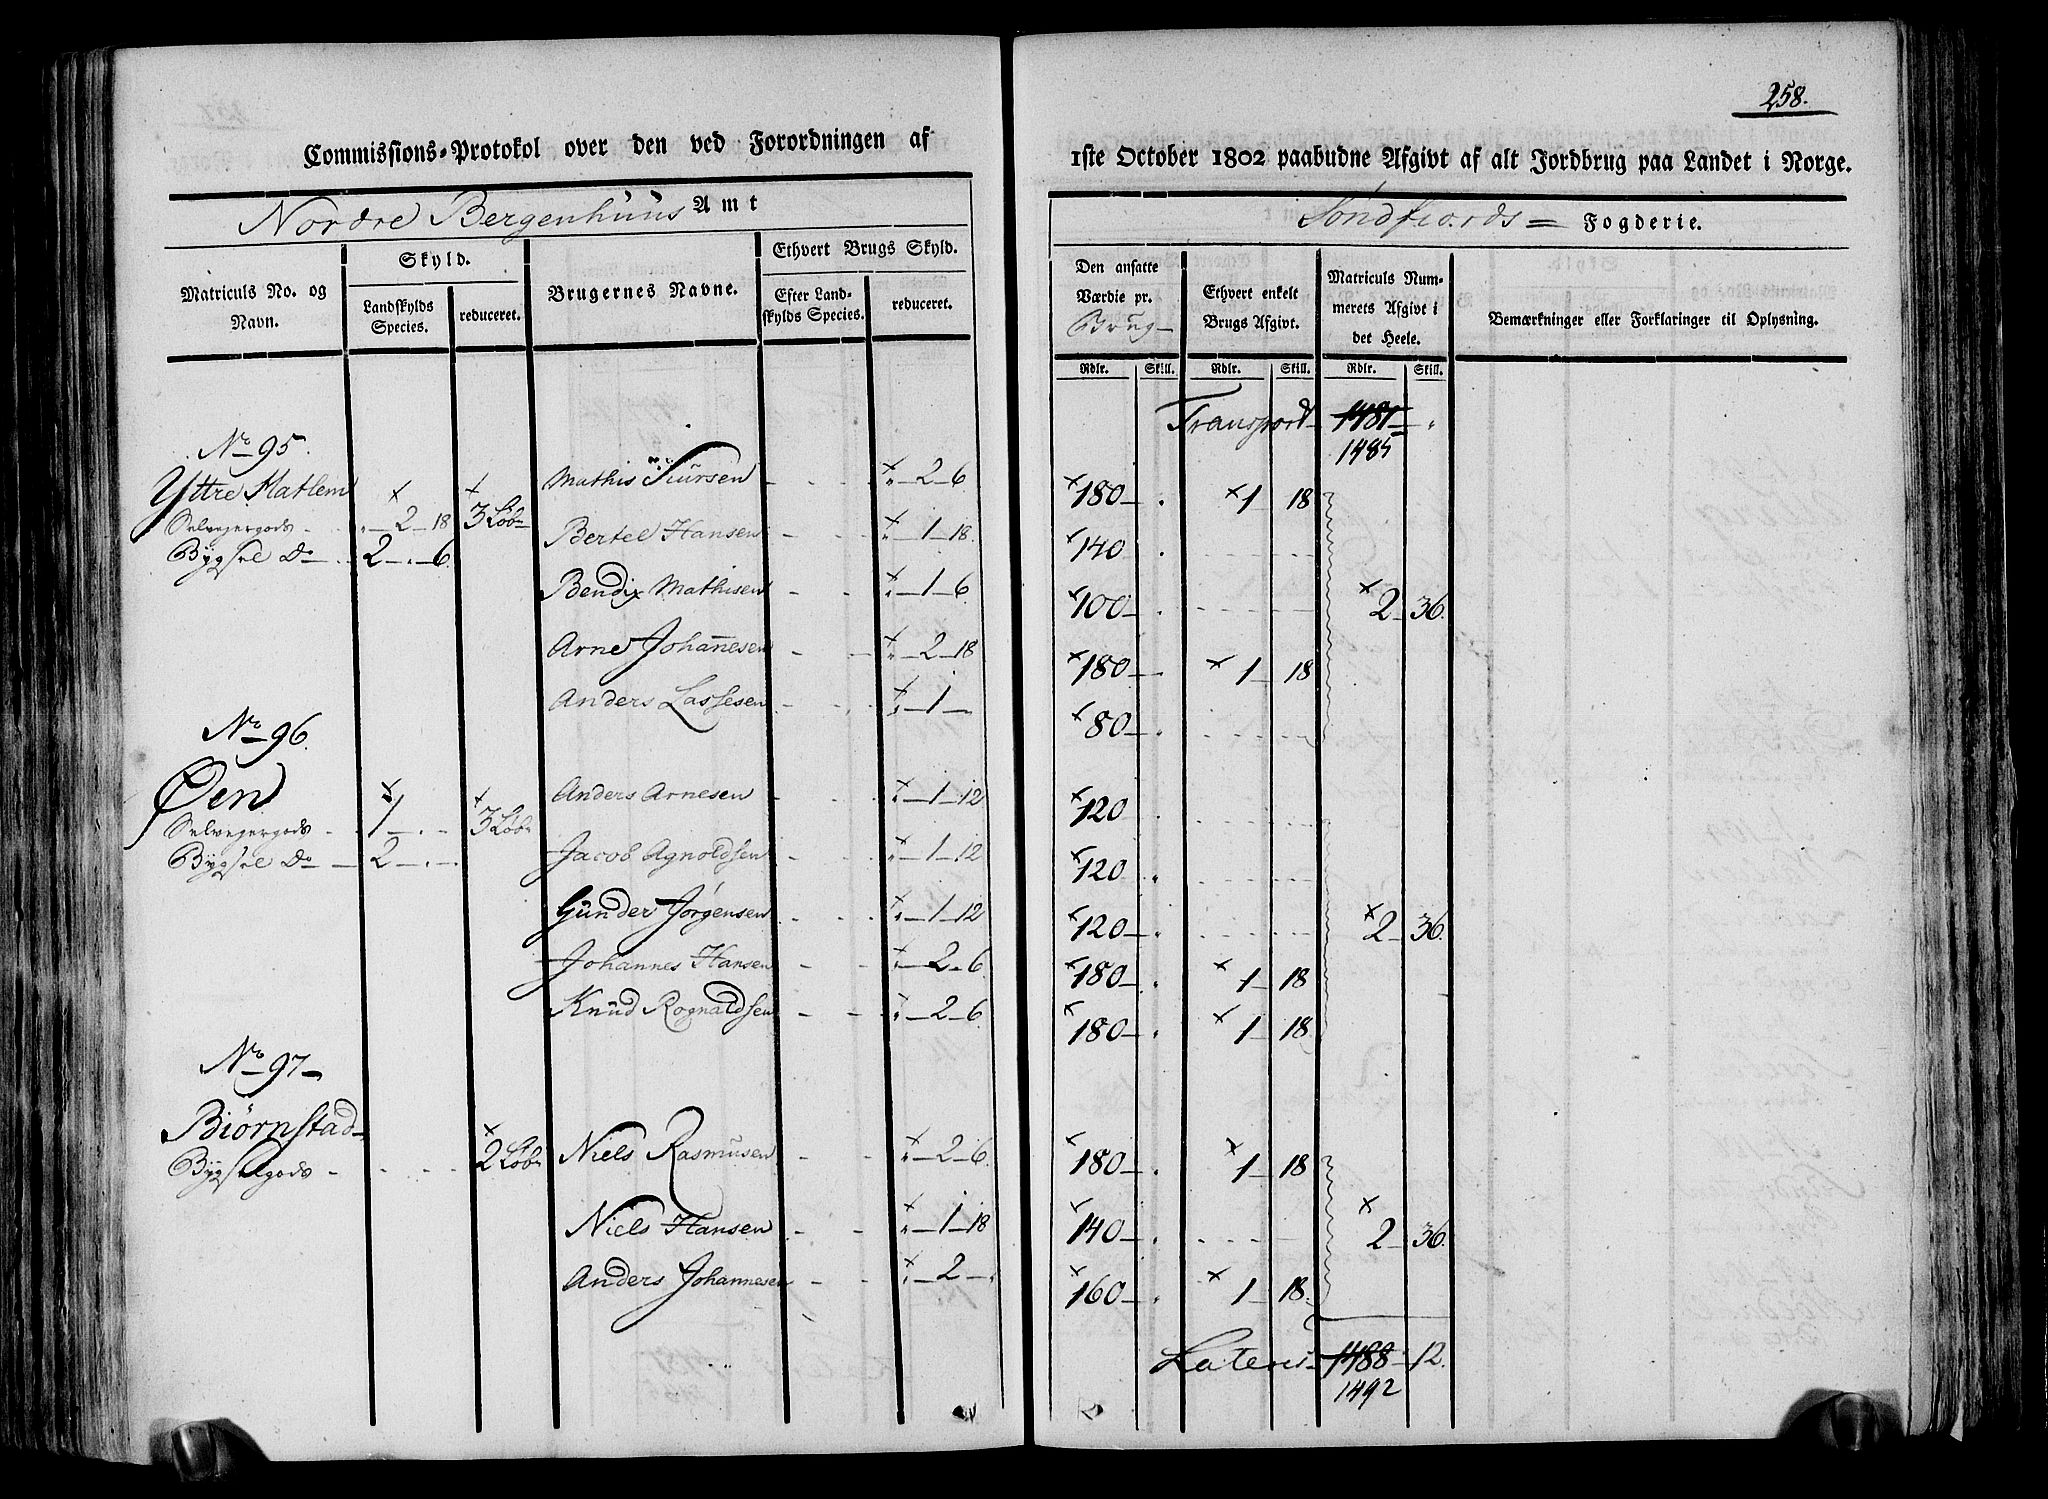 258.
Commissions-Protokol over den ved Forordningen af
1ste October 1802 paabudne Afgivt af alt Jordbrug paa Landet i Norge.
Nordre Bergenhuus Amt
Søndfiords= Fogderie.
Matriculs No. og Navn.
Skyld.
Landskylds Species.
reduceret.
Brugernes Navne.
Ethvert Brugs Skyld.
Efter Landskylds Species.
reduceret.
Den ansatte Værdie pr. Brug
Ethvert enkelt Brugs Afgivt.
Matriculs Nummerets Afgivt i det Heele.
Bemærkninger eller Forklaringer til Oplysning.
Rdlr. Skill. Rdlr. Skill. Rdlr. Skill.
Transport 1481 "
1485
No 95.
Yttre Hatlem
Selvegergods " 2 18 3 Løb
Bygsel Do 2 " 6
Mathis Siursen - - " 2 6 180 " 1 18
Bertel Hansen - - " 1 18 140 "
Bendix Mathisen - - " 1 6 100 " 2 36.
Arne Johannesen - - " 2 18 180 - 1 18
Anders Lassesen - - " 1 - 80 "
No 96.
Øen
Selvegergods 1 " - 3 Løb
Bygsel Do 2 " -
Anders Arnesen - - " 1 12 120
Jacob Agnoldsen - - " 1 12 120 "
Gunder Jørgensen - - " 1 12 120 " 2 36.
Johannes Hansen - - " 2 6 180 " 1 18
Knud Rognaldsen - - " 2 6 180 " 1 18
No 97
Biørnstad
Bygselgods - 2 Løb
Niels Rasmusen - - " 2 6 180 " 1 18
Niels Hansen - - " 1 18 140 " 2 36.
Anders Johannesen - - " 2 " 160 " 1 18
Lateris 1488 12.
1492